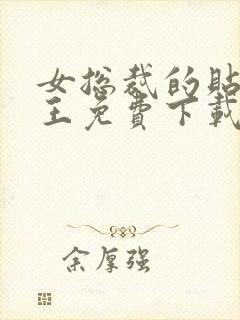 女总裁的贴
王免费下载
余厚强